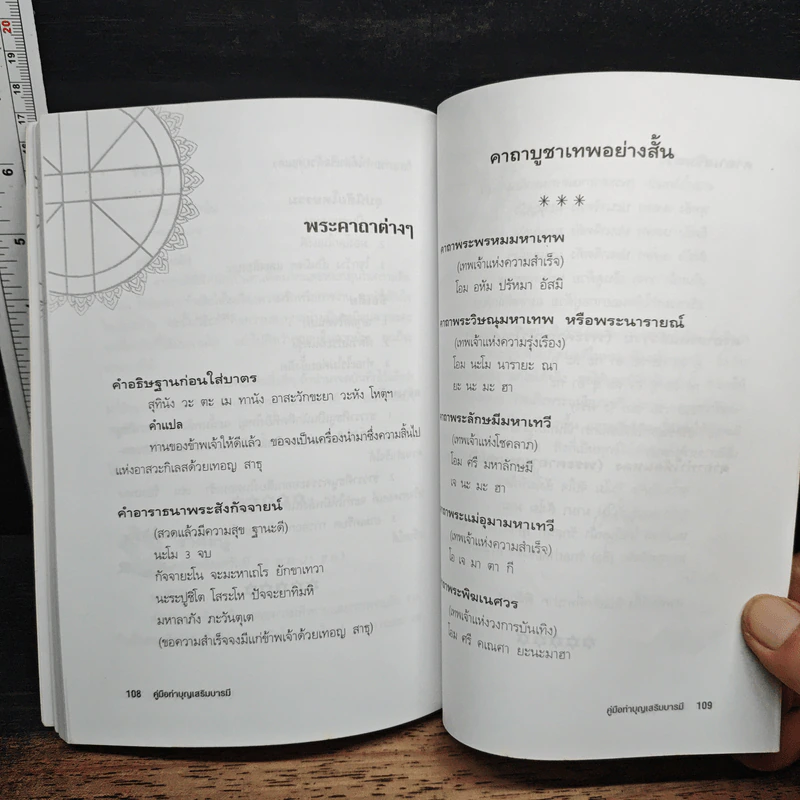 พระคาถาต่างๆ
คำอธิษฐานก่อนใส่บาตร
สุทินัง วะ ตะ เม ทานัง อาสะวักขะยา วะหัง โหตุฯ
คำแปล
ทานของข้าพเจ้าให้ดีแล้ว ขอจงเป็นเครื่องนำมาซึ่งความสิ้นไป
แห่งอาสวะกิเลสด้วยเทอญ สาธุ
คำอาราธนาพระสังกัจจายน์
(สวดแล้วมีความสุข ฐานะดี)
นะโม 3 จบ
กัจจายะโน จะมะหาเถโร ยักขาเทวา
นะระปูชิโต โสระโห ปัจจะยาทิมหิ
มหาลาภัง ภะวันตุเต
(ขอความสำเร็จจงมีแก่ข้าพเจ้าด้วยเทอญ สาธุ)
108 คู่มือทำบุญเสริมบารมี
คาถาบูชาเทพอย่างสั้น
***
คาถาพระพรหมมหาเทพ
(เทพเจ้าแห่งความสำเร็จ)
โอม อหัม ปรัหมา อัสมิ
คาถาพระวิษณุมหาเทพ หรือพระนารายณ์
(เทพเจ้าแห่งความรุ่งเรือง)
โอม นะโม นารายะ ณา
ยะ นะ มะ ฮา
คาถาพระลักษมีมหาเทวี
(เทพเจ้าแห่งโชคลาภ)
โอม ศรี มหาลักษมี
เจ นะ มะ ฮา
คาถาพระแม่อุมามหาเทวี
(เทพเจ้าแห่งความสำเร็จ)
โอ เจ มา ตา กี
คาถาพระพิฆเนศวร
(เทพเจ้าแห่งวงการบันเทิง)
โอม ศรี คเณศา ยะนะมาฮา
คู่มือทำบุญเสริมบารมี 109
20
19
18
17
16
15
14
13
6
5